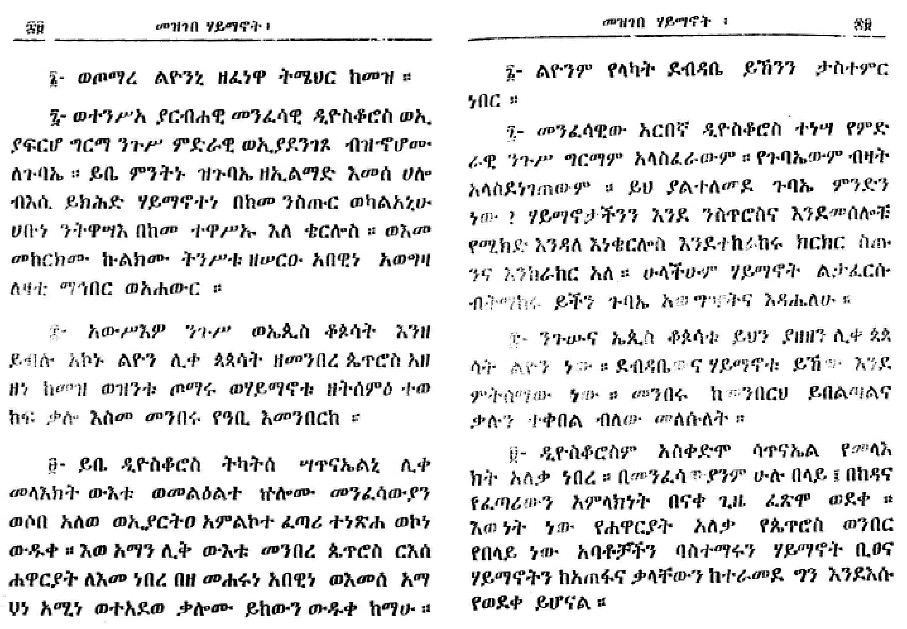 ፶፱ መዝገበ ሃይማኖት ፡
፮- ወጦማረ ልዮንኒ ዘፈነዋ ትሜህር ከመዝ ።
፯- ወተንሥአ ያርብሐዊ መንፈሳዊ ዲዮስቆሮስ ወኢ
ያፍርሆ ግርማ ንጉሥ ምድራዊ ወኢያደንገጾ ብዝኖሆሙ
ለጉባኤ ። ይቤ ምንትኑ ዝጉባኤ ዘኢልማድ እመሰ ሀሎ
ብእሲ ይክሕድ ሃይማኖተነ በከመ ንስጡር ወካልአኒሁ
ሀቡነ ንትዋሣእ በከመ ተዋሥኡ እለ ቄርሎስ ። ወእመ
መከርክሙ ኵልክሙ ትንሥቱ ዘሠርዑ አበዊነ አወግዛ
ለዛቲ ማኅበር ወአሐውር ።
፰- አውሥእዎ ንጉሥ ወኤጲስ ቆጶሳት እንዘ
ይብሉ አኮኑ ልዮን ሊቀ ጳጳሳት ዘመንበረ ጴጥሮስ አዘ
ዘነ ከመዝ ወዝንቱ ጦማሩ ወሃይማኖቱ ዘትሰምዕ ተወ
ከፍ ቃሎ እስመ መንበሩ የዓቢ እመንበርከ ።
፱- ይቤ ዲዮስቆሮስ ትካትሰ ሣጥናኤልኒ ሊቀ
መላእክት ውእቱ ወመልዕልተ ኵሎሙ መንፈሳውያን
ወሶበ አለወ ወኢያርትዐ አምልኮተ ፈጣሪ ተነጽሐ ወኮነ
ውዱቀ ። እወ አማን ሊቅ ውእቱ መንበረ ጴጥሮስ ርእሰ
ሐዋርያት ለእመ ነበረ በዘ መሐሩነ አበዊነ ወእመሰ አማ
ሠነ አሚነ ወተአደወ ቃሎሙ ይከውን ውዱቀ ከማሁ ።
መዝገበ ሃይማኖት ፡ ፶፱
፮- ልዮንም የላካት ደብዳቤ ይኸንን ታስተምር
ነበር ።
፯- መንፈሳዊው አርበኛ ዲዮስቆሮስ ተነሣ የምድ
ራዊ ንጉሥ ግርማም አላስፈራውም ። የጉባኤውም ብዛት
አላስደነገጠውም ። ይህ ያልተለመደ ጉባኤ ምንድን
ነው ? ሃይማኖታችንን እንደ ንስጥሮስና እንደመሰሎቹ
የሚክድ እንዳለ እነቄርሎስ እንደተከራከሩ ክርክር ስጡ
ንና እንከራከር አለ ። ሁላችሁም ሃይማኖት ልታፈርሱ
ብትማከሩ ይችን ጉባኤ አውግዣትና እዳሔለሁ ።
፰- ንጉሡና ኤጲስ ቆጶሳቱ ይህን ያዘዘን ሊቀ ጳጳ
ሳት ልዮን ነው ። ደብዳቤውና ሃይማኖቱ ይኸው እንደ
ምትሰማው ነው ። መንበሩ ከመንበርህ ይበልጣልና
ቃሉን ተቀበል ብለው መለሱለት ።
፱- ዲዮስቆሮስም አስቀድሞ ሳጥናኤል የመላእ
ክት አለቃ ነበረ ። በመንፈሳውያንም ሁሉ በላይ ፤ በከዳና
የፈጣሪውን አምላክነት በናቀ ጊዜ ፈጽሞ ወደቀ ።
እውነት ነው የሐዋርያት አለቃ የጴጥሮስ ወንበር
የበላይ ነው አባቶቻችን ባስተማሩን ሃይማኖት ቢፀና
ሃይማኖትን ከአጠፋና ቃላቸውን ከተራመደ ግን እንደእሱ
የወደቀ ይሆናል ።